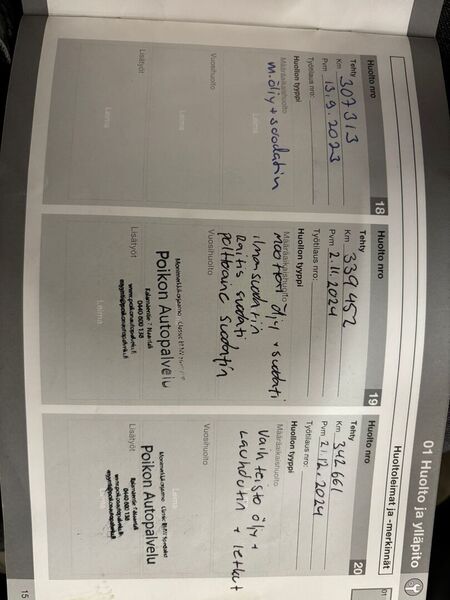 01 Huolto ja ylläpito
Huoltoleimat ja -merkinnät
01
Huolto nro
18
Tehty
Km 307313
Pvm 13.9.2023
Työtilaus nro:
Huollon tyyppi
Määräaikaishuolto
m.öljy + suodatin
Vuosihuolto
Leima
Lisätyöt
Leima
Leima
Huolto nro
19
Tehty
Km 339452
Pvm 2.11.2024
Työtilaus nro:
Huollon tyyppi
Määräaikaishuolto
moottori öljy + suodati
ilmansuodatin
raitis suodati
polttoaine suodatin
Vuosihuolto
Monimerkkikorjaamo
Poikon Autopalvelu
0440 600 138
Lisätyöt
Leima
Huolto nro
20
Tehty
Km 342661
Pvm 21.12.2024
Työtilaus nro:
Huollon tyyppi
Määräaikaishuolto
Vaihteisto öljy +
Lauhdutin + letkut
Vuosihuolto
Monimerkkikorjaamo
Poikon Autopalvelu
0440 600 138
Lisätyöt
15